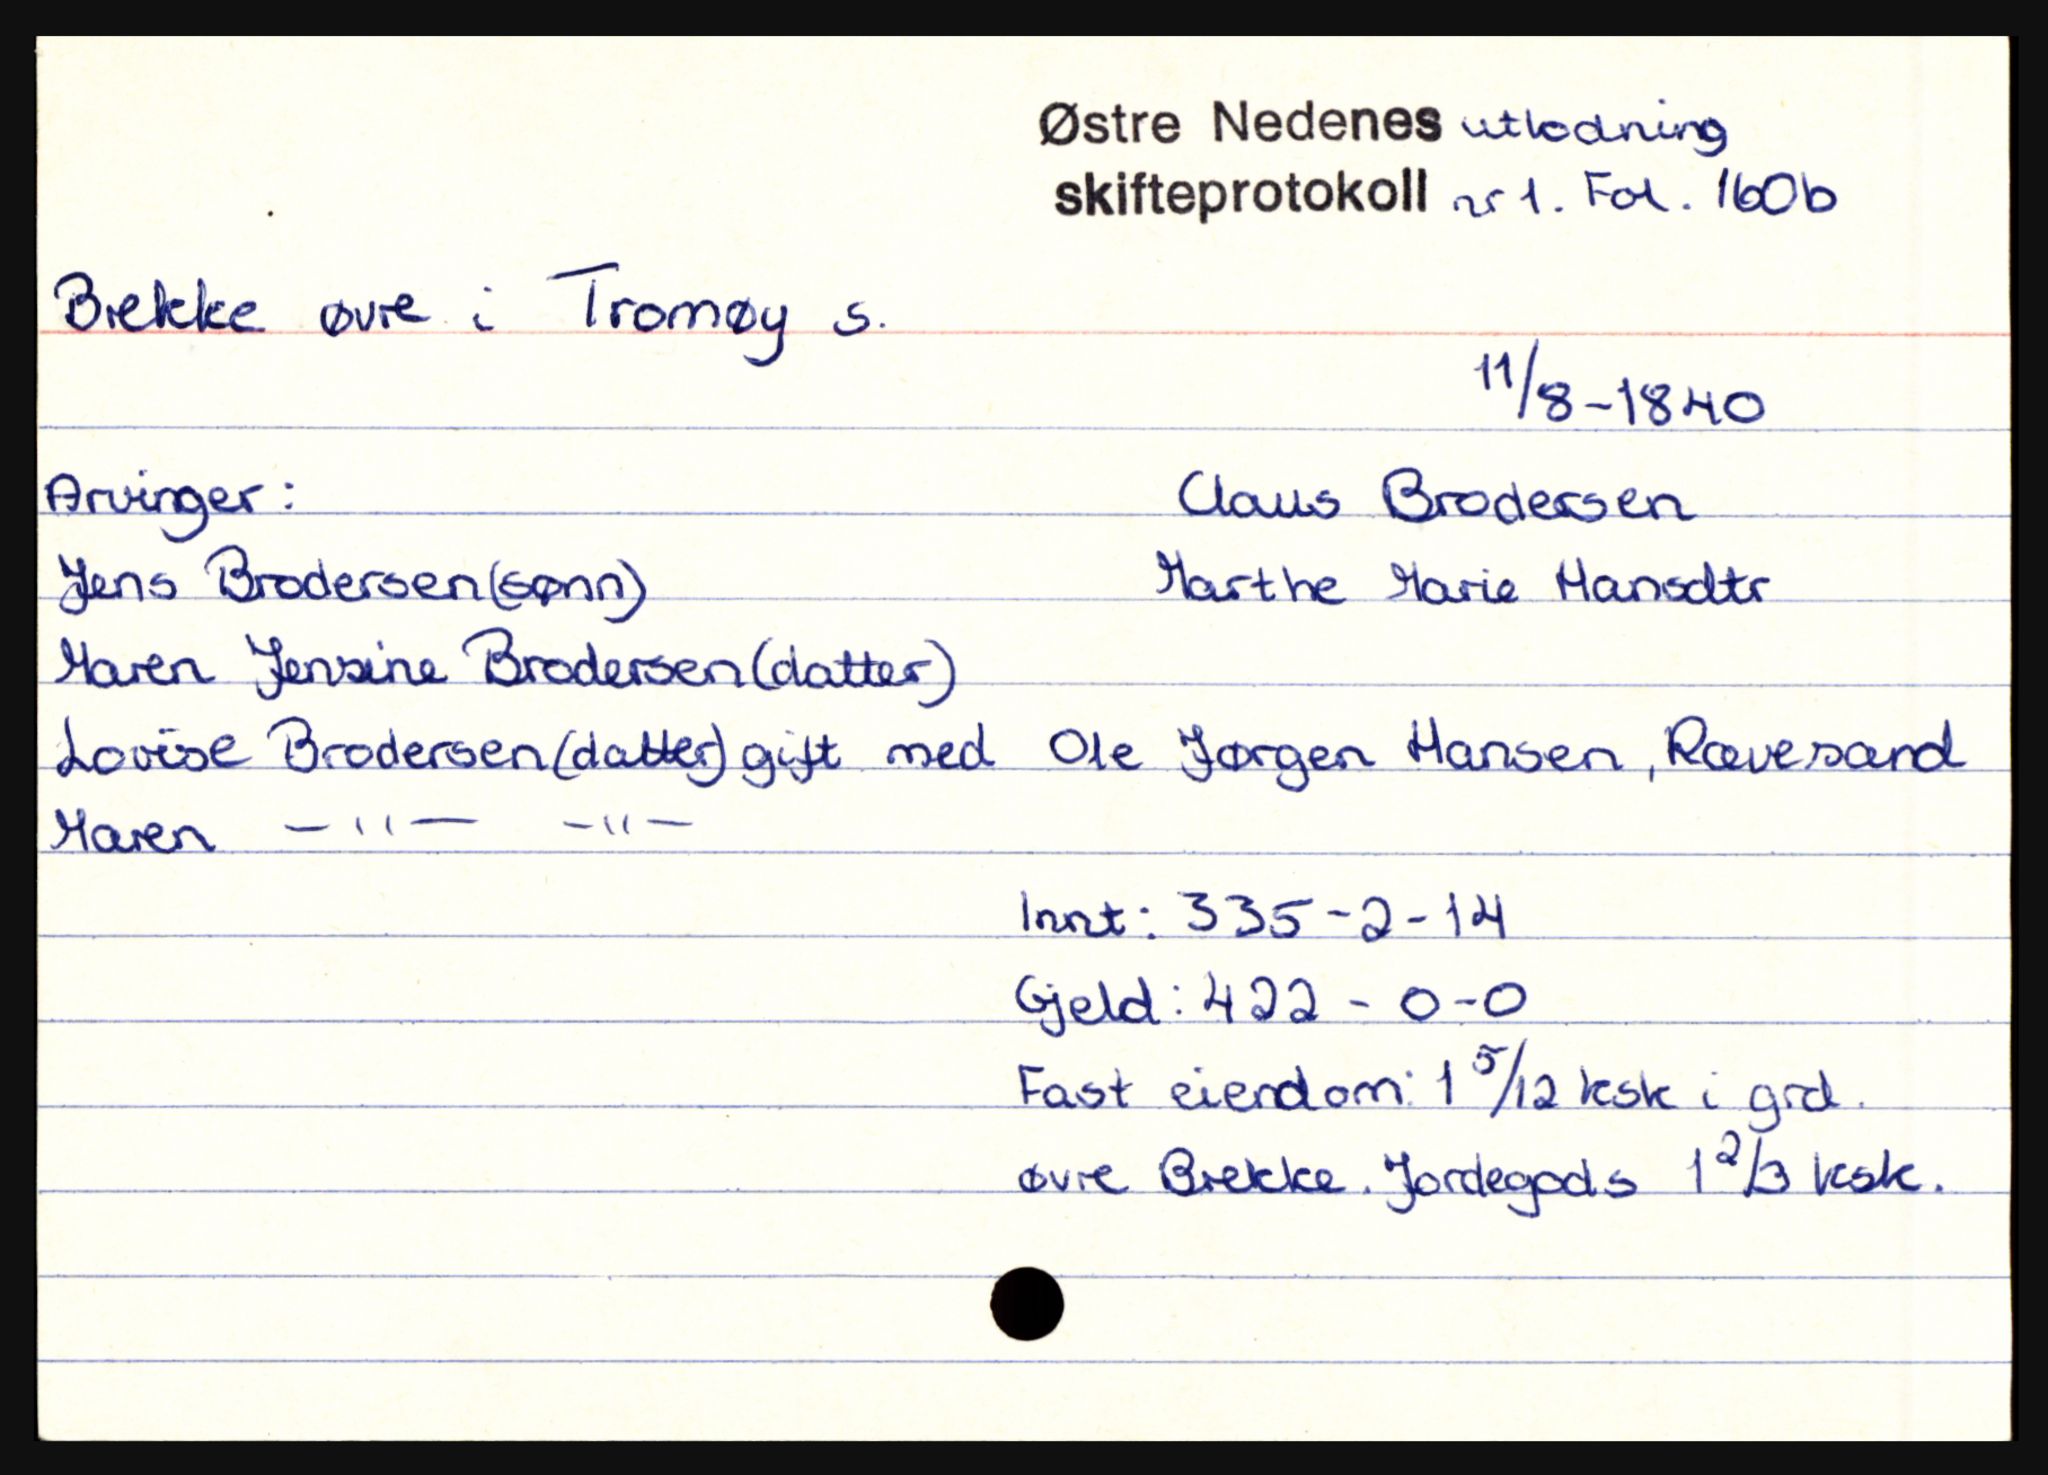 Østre Nedenes utlodning
skifteprotokoll nr 1. Fol. 160b
Brekke øvre i Tromøy s.
11/8-1840
Arvinger: Claus Brodersen
Jens Brodersen (sønn) Marthe Marie Hansdtr
Maren Jensine Brodersen (datter)
Lovise Brodersen (datter) gift med Ole Jørgen Hansen, Rævesand
Maren —"— —"—
Innt: 335-2-14
Gjeld: 422 - 0-0
Fast eiendom: 1 5/12 ksk i grd.
øvre Brekke. Jordegods 1 2/3 ksk.